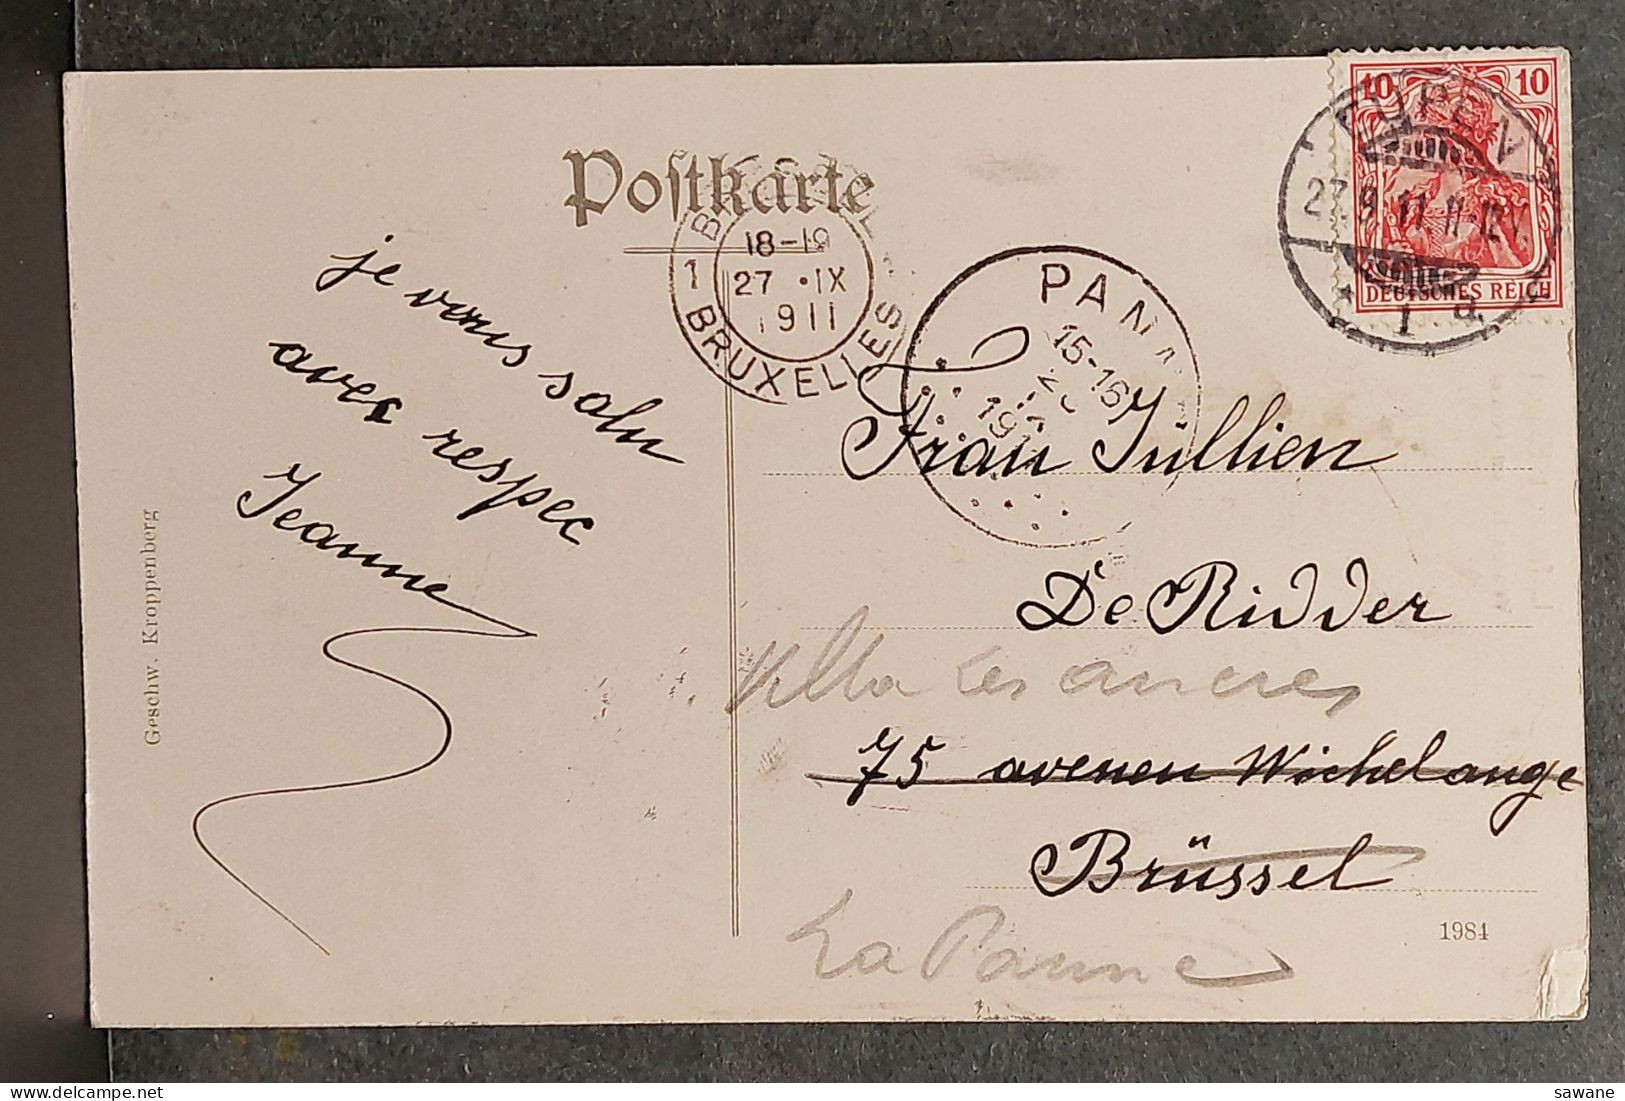 Postkarte
10 10
EUPEN
27.9.11.11-12V.
* 1 d
DEUTSCHES REICH
1
18-19
27 • IX
1911
BRUXELLES
PANN
15-16
je vous salu
avec respec
Jeanne
Frau Jullien
De Ridder
Villa les ancres
75 avenen Michelange
Brüssel
La Panne
1984
Geschw. Kroppenberg
sawane